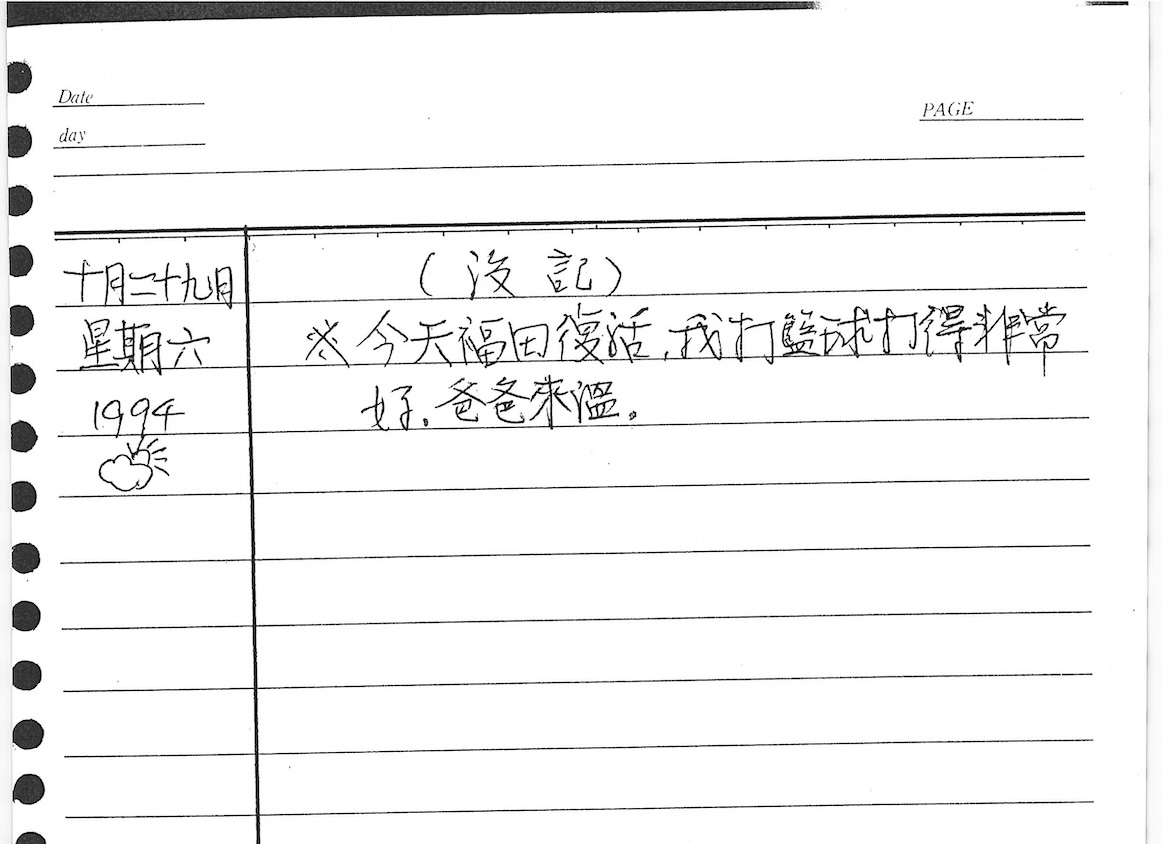 Date
day
PAGE
十月二十九日
星期六
1994
(沒記)
※今天福田復活,我打籃球打得非常
好.爸爸來溫。